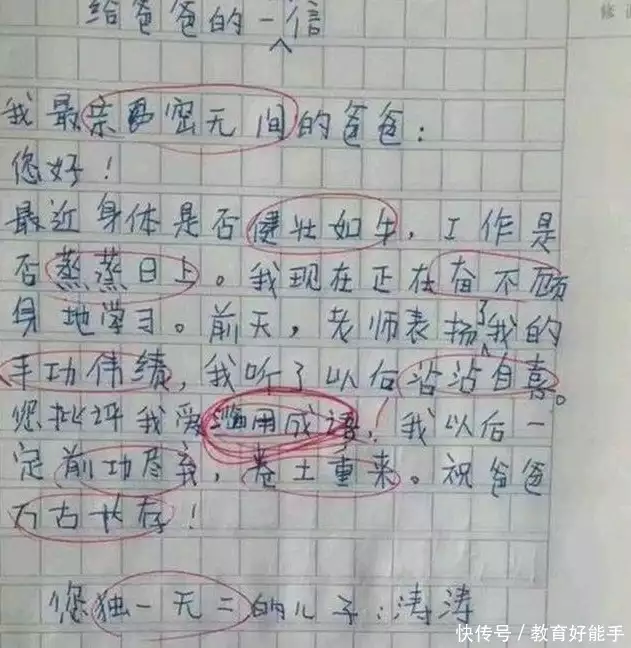 给爸爸的一信
修
我最亲密无间的爸爸：
您好！
最近身体是否健壮如牛，工作是
否蒸蒸日上。我现在正在奋不顾
身地学习。前天，老师表扬了我的
丰功伟绩，我听了以后沾沾自喜。
您批评我爱滥用成语，我以后一
定前功尽弃，卷土重来。祝爸爸
万古长存！
您独一无二的儿子：涛涛
快传号／教育好能手